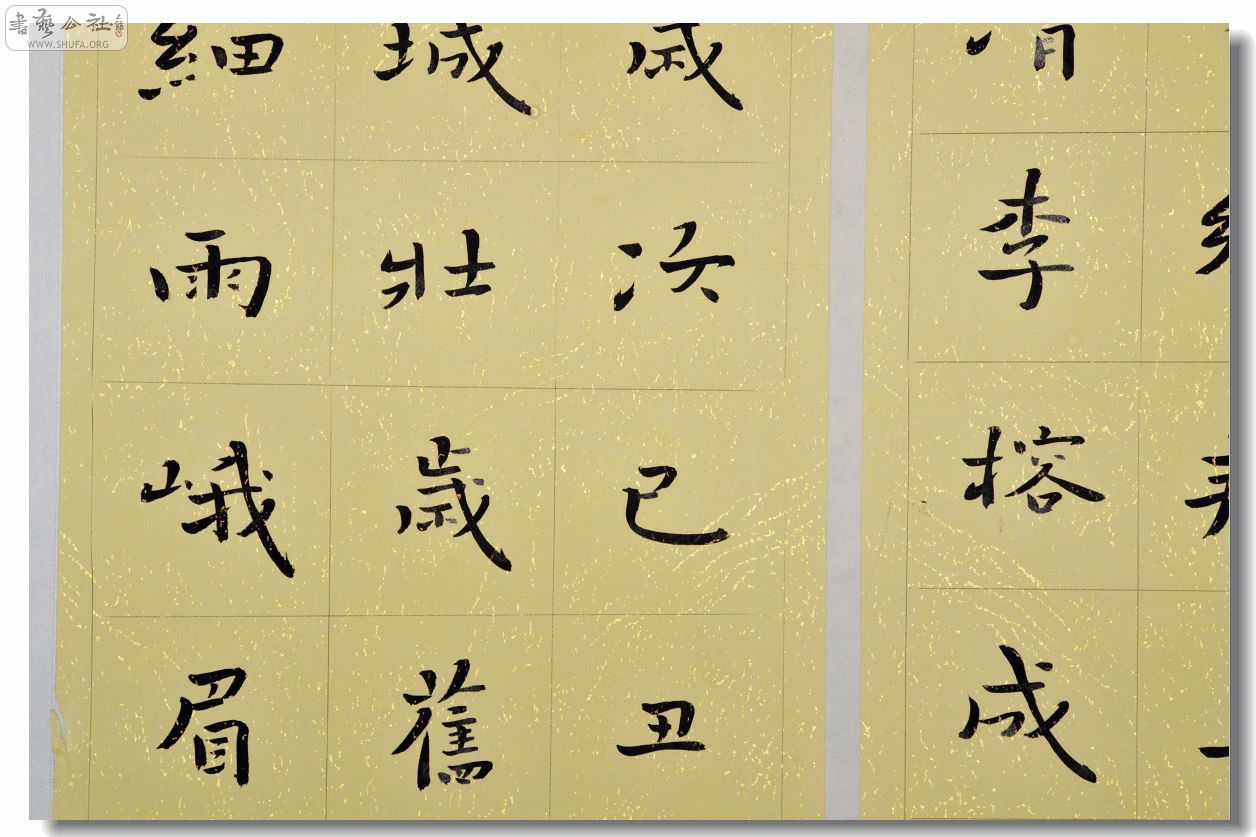 書藝公社
WWW.SHUFA.ORG
李榕成
歲次已丑
城壯歲舊
細雨峨眉